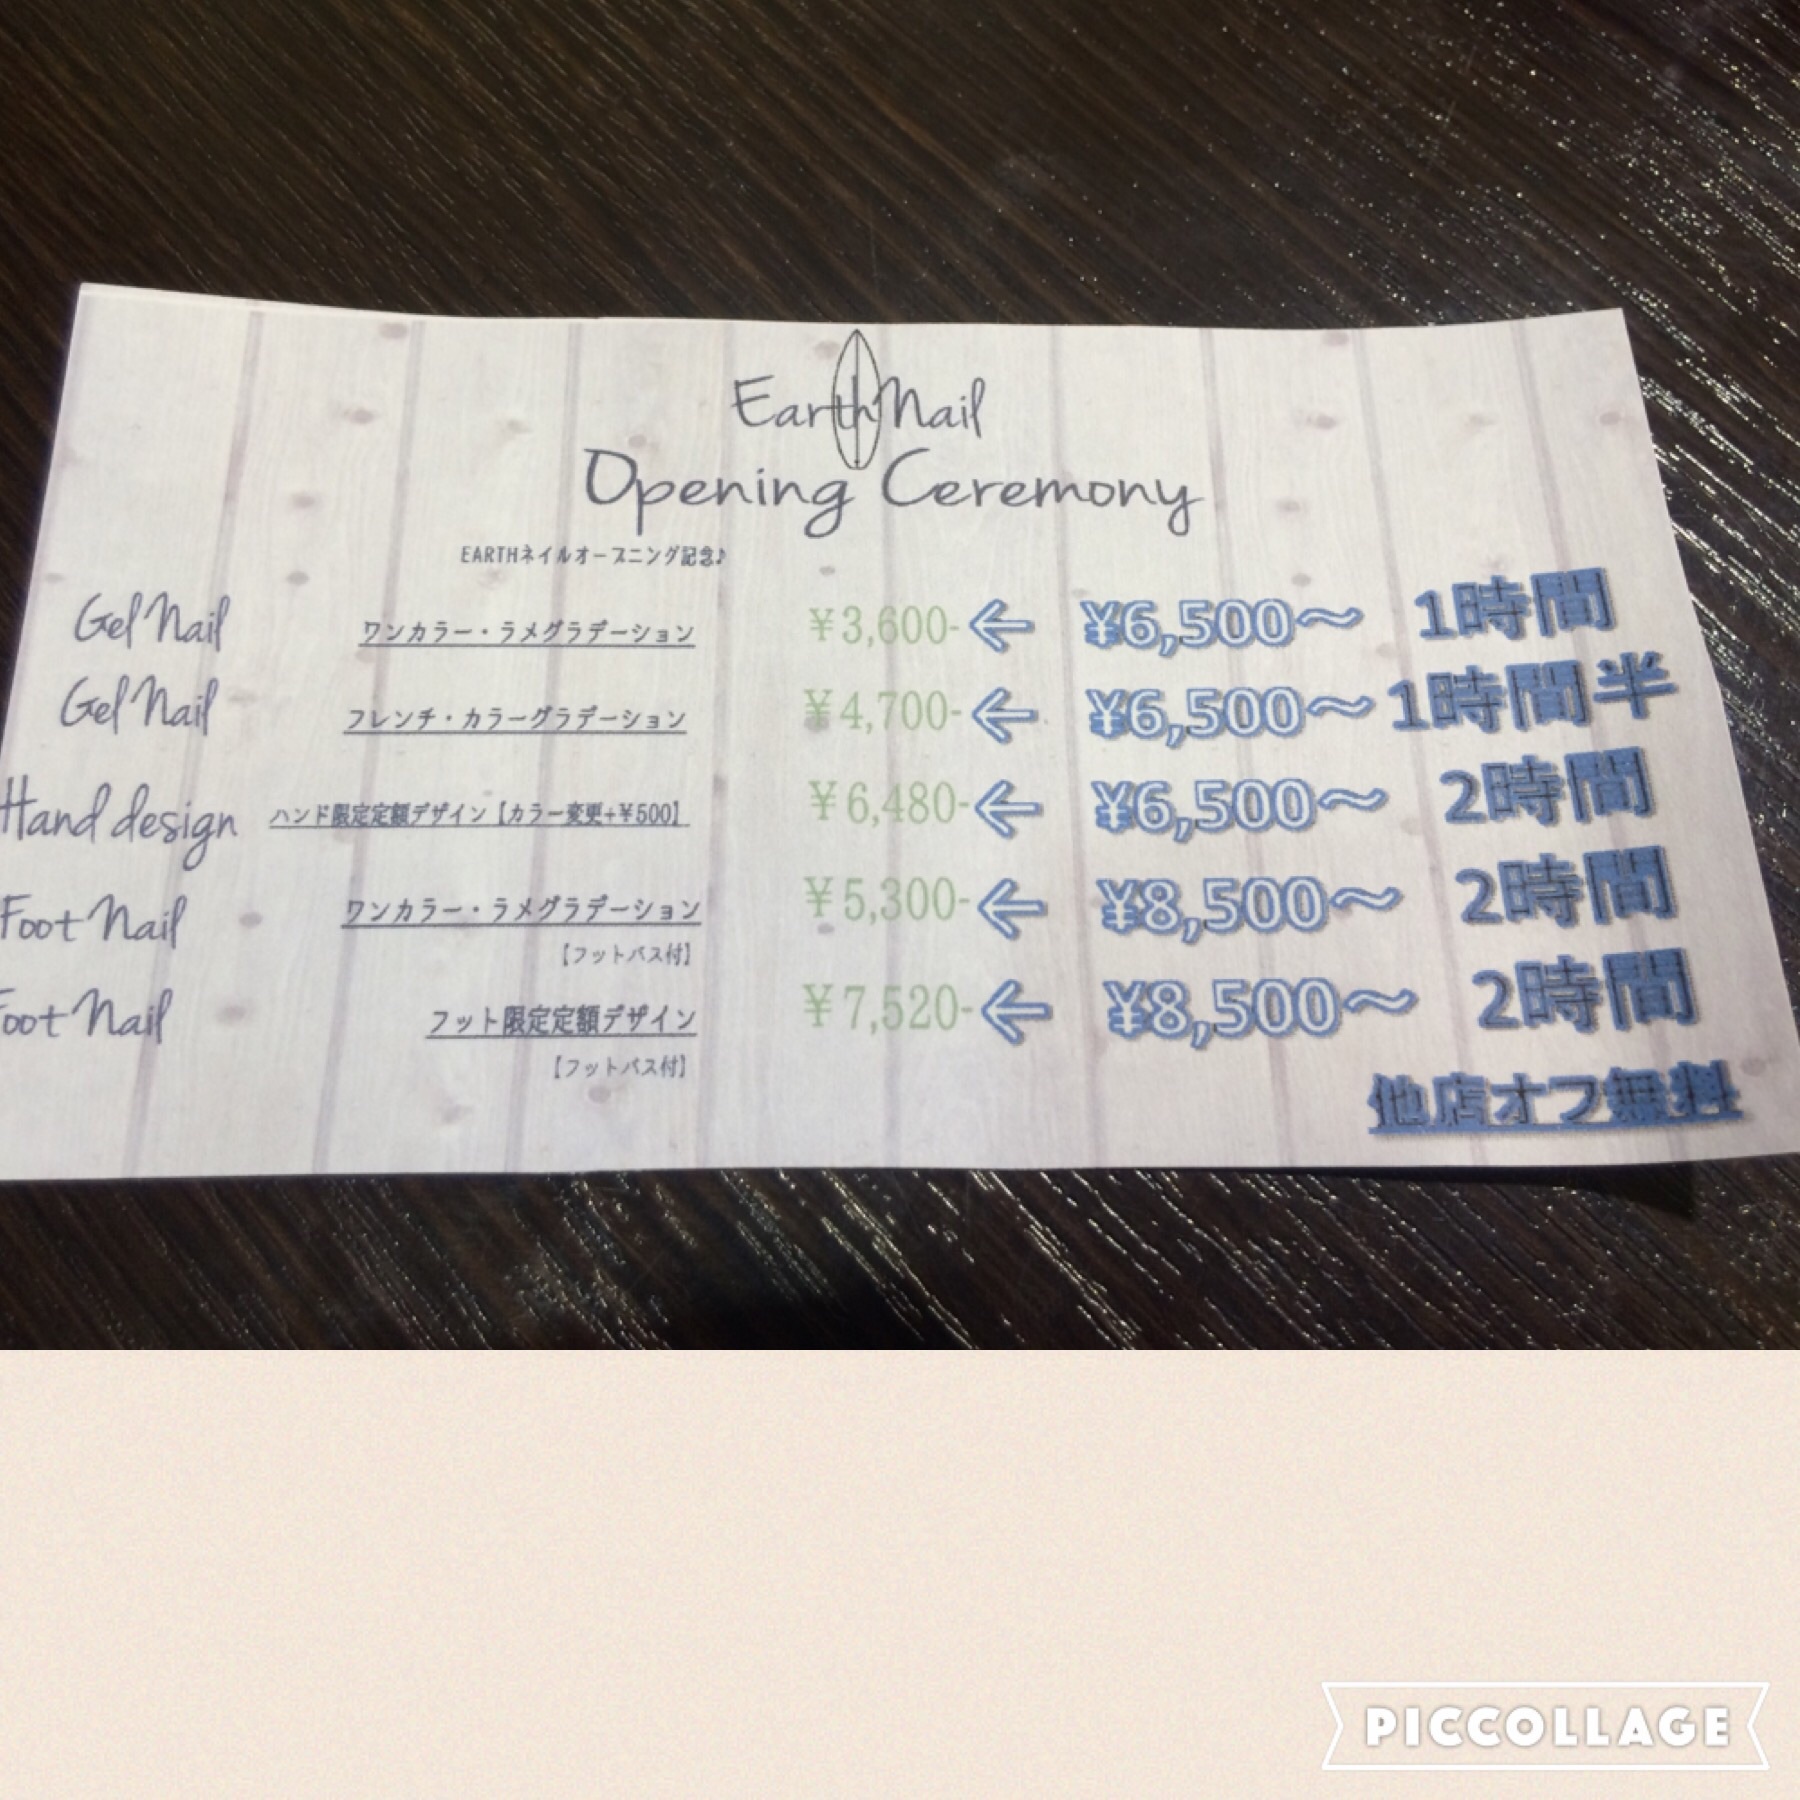 Earth Nail
Opening Ceremony
EARTHネイルオープニング記念♪
Gel Nail ワンカラー・ラメグラデーション ¥3,600- ← ¥6,500～ 1時間
Gel Nail フレンチ・カラーグラデーション ¥4,700- ← ¥6,500～ 1時間半
Hand design ハンド限定定額デザイン【カラー変更+¥500】 ¥6,480- ← ¥6,500～ 2時間
Foot Nail ワンカラー・ラメグラデーション ¥5,300- ← ¥8,500～ 2時間
【フットバス付】
Foot Nail フット限定定額デザイン ¥7,520- ← ¥8,500～ 2時間
【フットバス付】
他店オフ無料
PICCOLLAGE